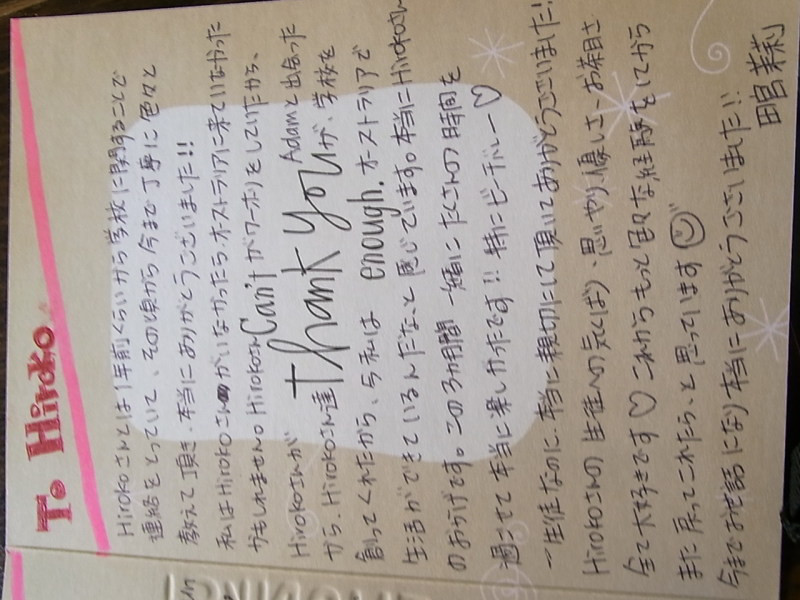 To Hiroko
Hirokoさんとは1年前くらいから学校に関することで
連絡をとっていて、その頃から今まで丁寧に色々と
教えて頂き、本当にありがとうございました!!
私はHirokoさんがいなかったら、オーストラリアに来ていなかった
かもしれません。Hirokoさんがワーホリをしていたから、
Hirokoさんが Adamと出会った
から、Hirokoさん達が、学校を
創ってくれたから、今私は オーストラリアで
生活ができているんだな、と感じています。本当にHirokoさん
のおかげです。この3カ月間 一緒にたくさんの時間を
過ごせて本当に楽しかったです!! 特にビーチバレー♡
一生徒なのに、本当に親切にして頂いてありがとうございました!
Hirokoさんの生徒への気くばり、思いやり、優しさ、お茶目さ
全て大好きです♡ これからもっと色々な経験をしてから
また戻ってこれたら、と思っています☺
今までお世話になり本当にありがとうございました!!
Can't
Thank You
enough.